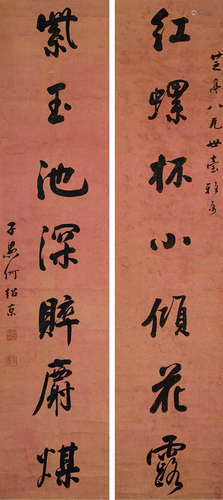 芝亭八兄世臺雅屬
红螺杯小傾花露
紫玉池深貯麝煤
子愚何紹京